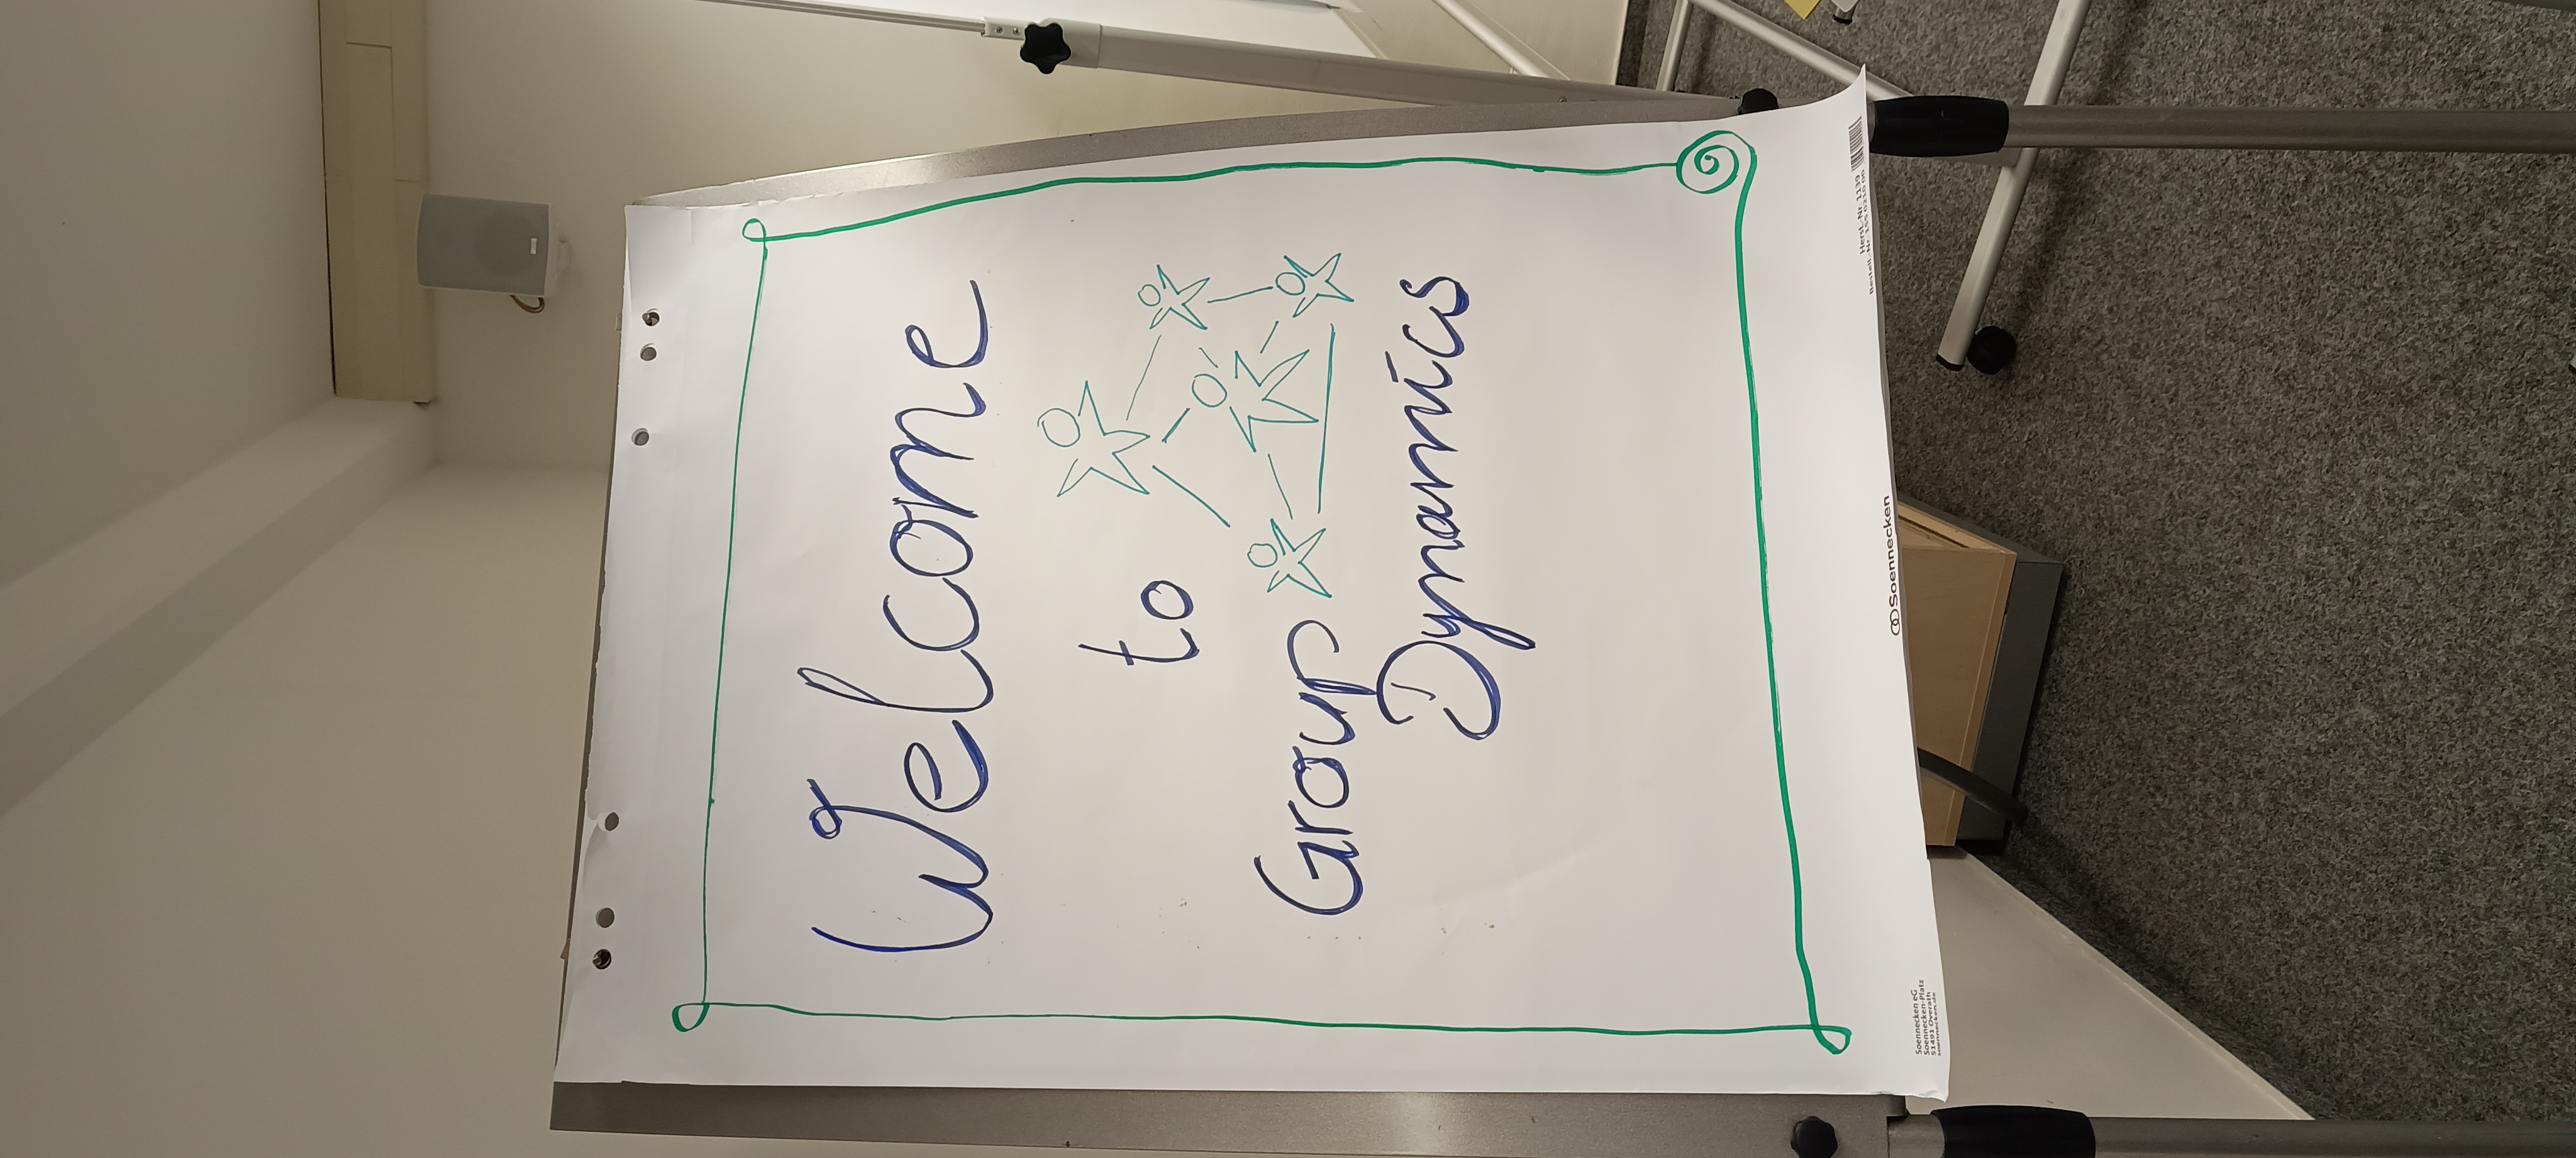 Welcome
to
Group
Dynamics
Soennecken eG
Soennecken-Platz
51491 Overath
soennecken.de
Soennecken
Herst.-Nr. 1139